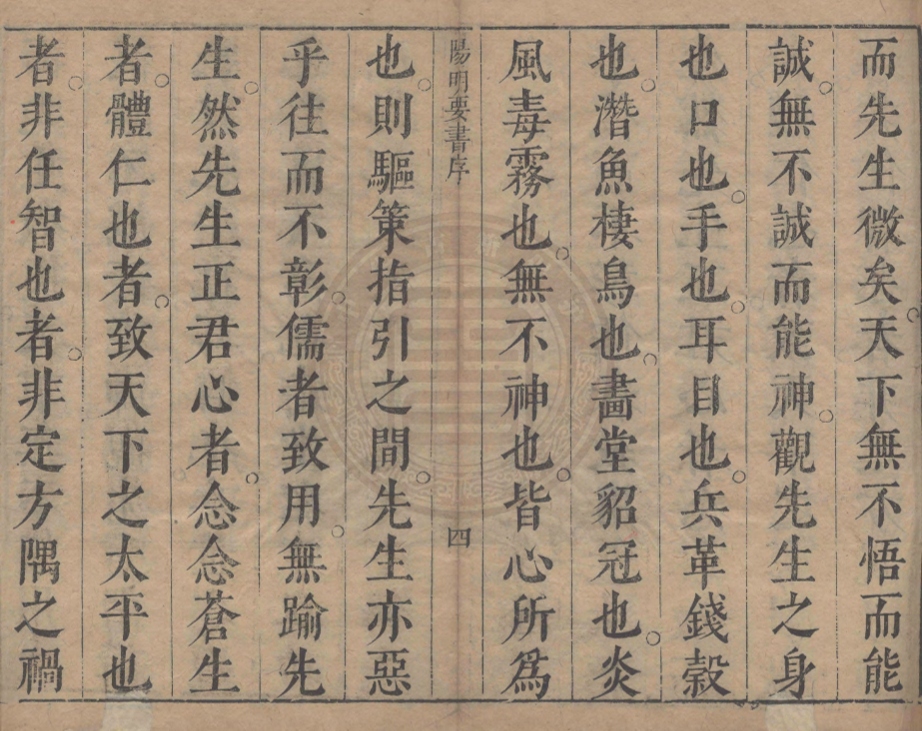 而先生微矣。天下無不悟而能
誠。無不誠而能神。觀先生之身
也口也。手也。耳目也。兵革錢穀
也。潛魚棲鳥也。畵堂貂冠也。炎
風毒霧也。無不神也。皆心所爲
陽明要書序 四
也。則驅策指引之間。先生亦惡
乎往而不彰。儒者致用。無踰先
生。然先生正君心者。念念蒼生
者。體仁也者。致天下之太平也
者非任智也者。非定方隅之禍